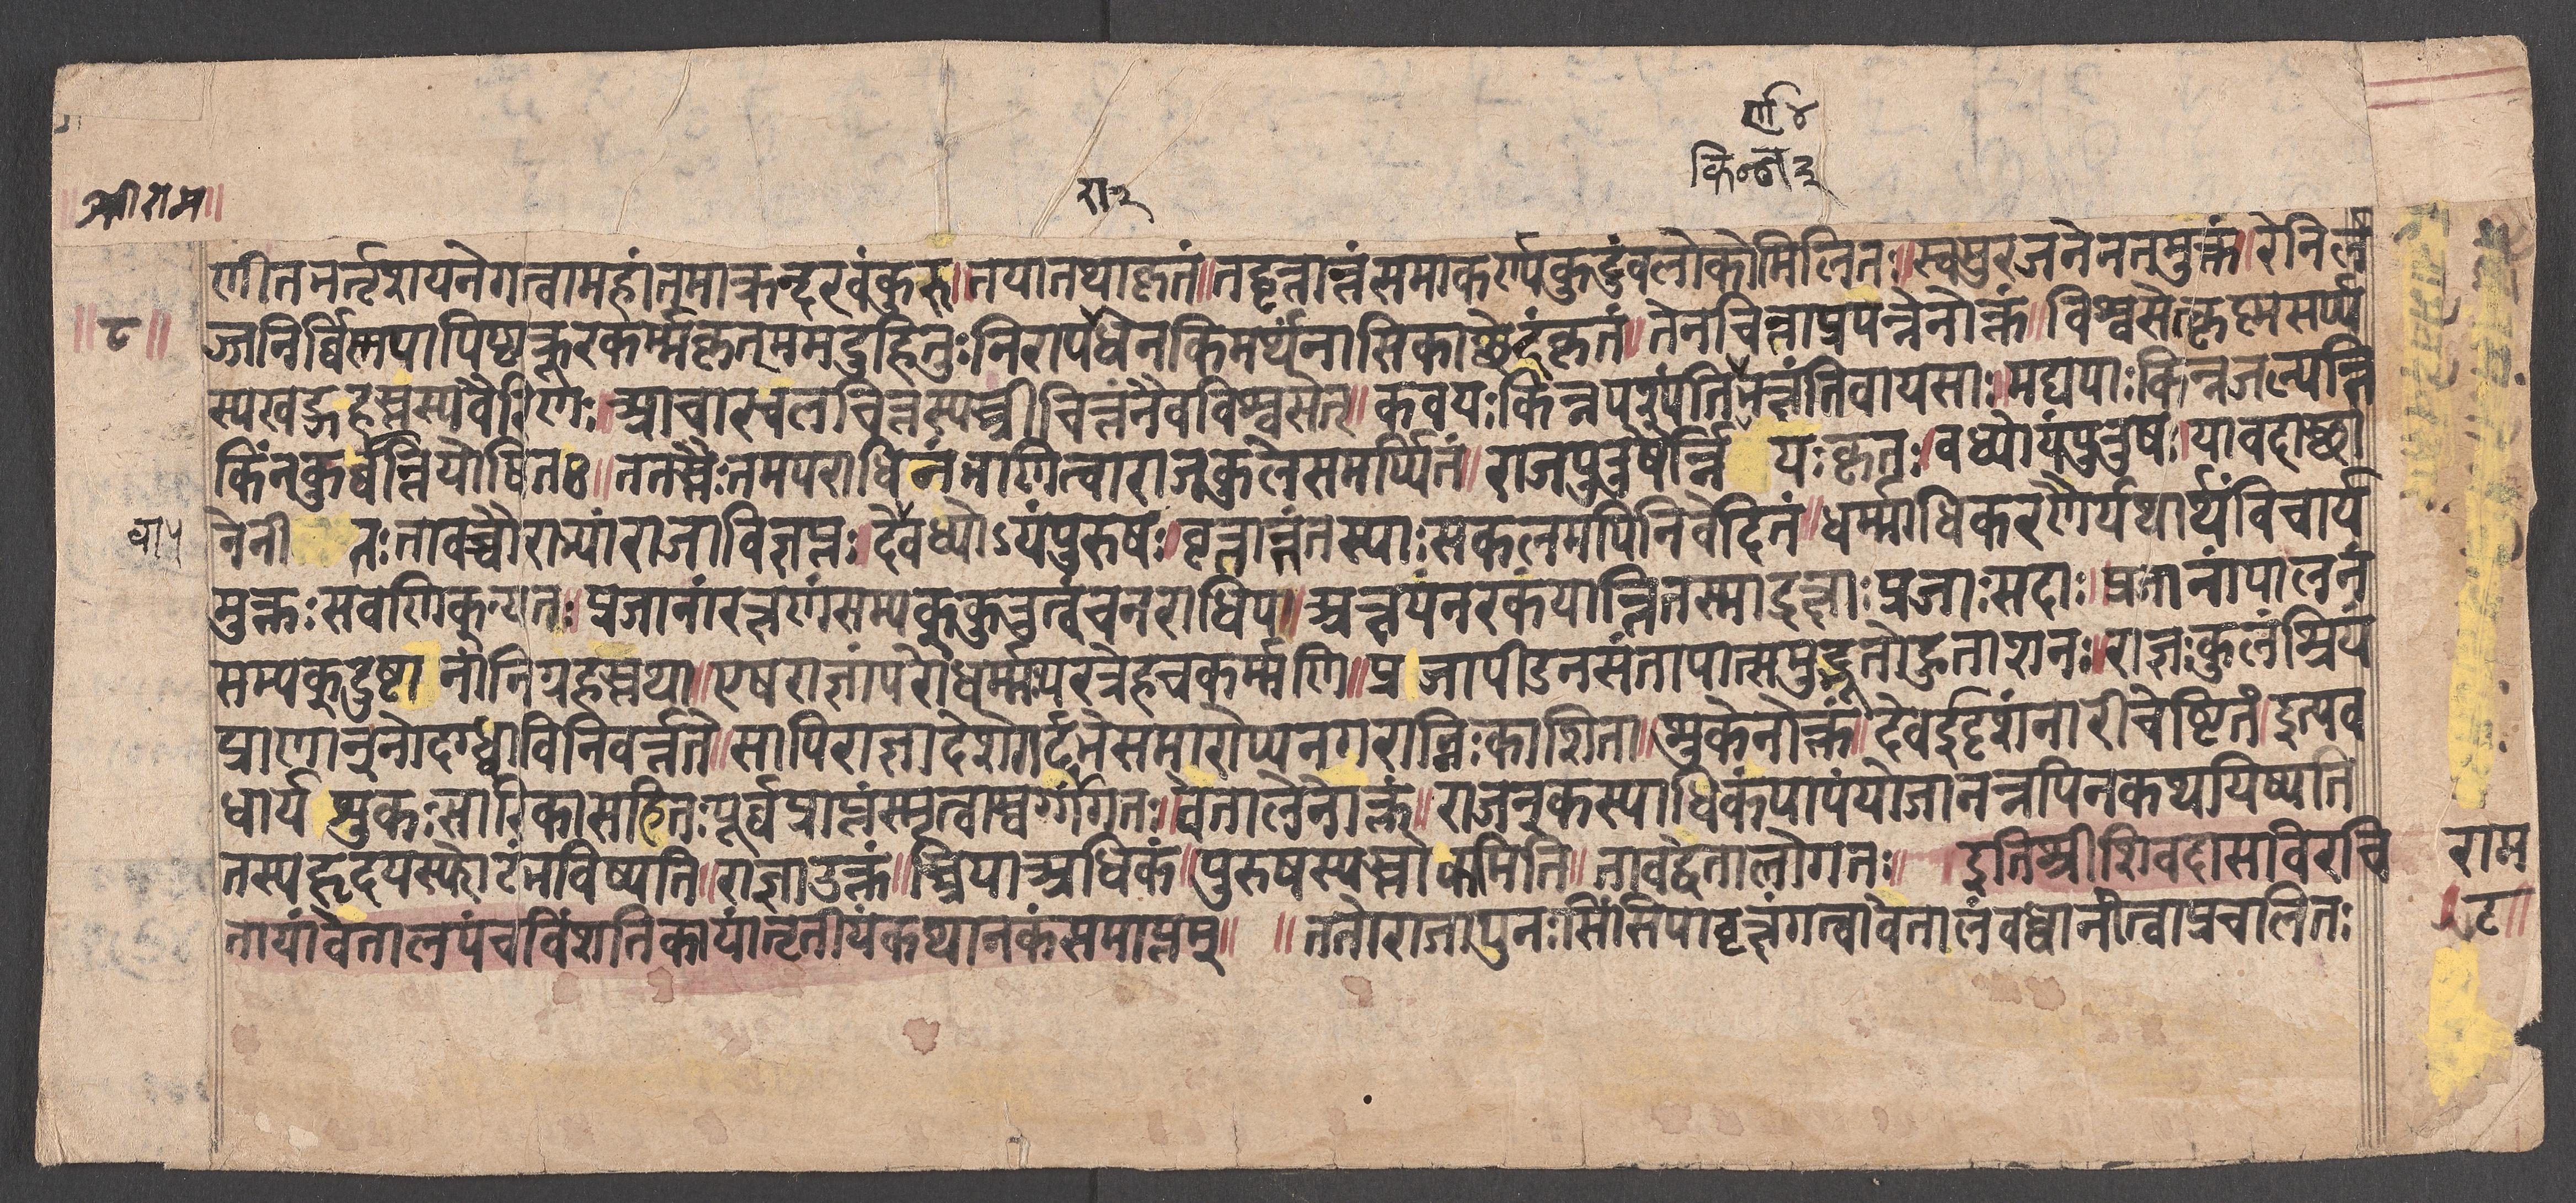 रा४
किञ्चा३
श्रीराम
रा२
णीतभर्त्तृशयनेगत्वामहांतमाक्रन्दरवंकुरु॥तयातथाकृतं॥तद्वृत्तान्तंसमाकर्ण्यकुटुंबलोकोमिलितः॥स्वपुरजनेनतमुक्तं॥रेनिर्ल
॥८॥
ज्जनिर्घिणपापिष्ठक्रूरकर्म्मकृतममदुहितुःनिरापधेनकिमर्थंनासिकाछेदंकृतं॥तेनचिन्ताप्रपन्नेनोक्तं॥विश्वसेत्कृष्णसर्प्प
स्यखड्गहस्तस्यवैरिणः॥आचारचलचित्तस्यस्त्रीचित्तंनैवविश्वसेत्॥कवयःकिन्नपश्यंतिभक्षंतिवायसाः॥मद्यपाःकिन्नजल्पन्ति
किंनकुर्वन्तियोषितः॥ततस्तैःतमपराधिनंभणित्वाराजकुलेसमर्प्पितं॥राजपुरुषैर्न्नि यःकृतः॥वध्योयंपुरुषः॥यावद्वध्यस्था
वा५
नेनी तःतावच्चौराभ्यांराजाविज्ञप्तः॥देवैवध्योऽयंपुरुषः॥वृत्तान्तंतस्याःसकलमपिनिवेदितं॥धर्म्माधिकरणैर्यथार्थंविचार्य
मुक्तःसवणिकुन्यतः॥प्रजानांरक्षणंसम्यक्कुरुत्वंचनराधिप॥अक्षयंनरकंयान्तितस्माद्रक्षाःप्रजाःसदाः॥प्रजानांपालनं
सम्यक्दुष्टा नांनिग्रहस्तथा॥एषराज्ञांपरोधर्म्मःपरत्रेहचकर्म्मणि॥प्र जापीडनसंतापात्समुद्भूतोहुताशनः॥राज्ञःकुलंश्रियं
प्राणान्नोदग्ध्वाविनिवर्त्तते॥सापिराज्ञादेशेगर्दभेसमारोप्यनगरान्निःकाशिता॥शुकेनोक्तं॥देवईदृशंनारीचेष्टितं॥इत्यव
धार्य शुकःसारिकासहितःपूर्वप्राप्तंस्मृत्वास्वर्गंगतः॥वेतालेनोक्तं॥राजन्कस्याधिकंपापंयोजानन्नपिनकथयिष्यति
तस्यहृदयस्फोटंभविष्यति॥राज्ञाउक्तं॥स्त्रियाअधिकं॥पुरुषस्यस्तोकमिति॥तावद्वेतालोगतः॥ इतिश्रीशिवदासविरचि
राम
तायांवेतालपंचविंशतिकायांतृतीयंकथानकंसमाप्तम्॥ ॥ततोराजापुनःसिंसिपावृक्षंगत्वावेतालंबध्वानीत्वाप्रचलितः
॥८॥